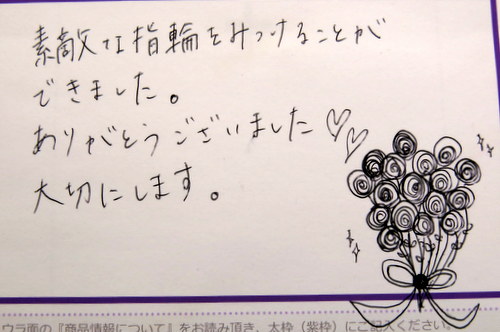 素敵な指輪をみつけることが
できました。
ありがとうございました♡♡
大切にします。
ウラ面の『商品情報について』をお読み頂き、太枠（紫枠）にご記入ください。